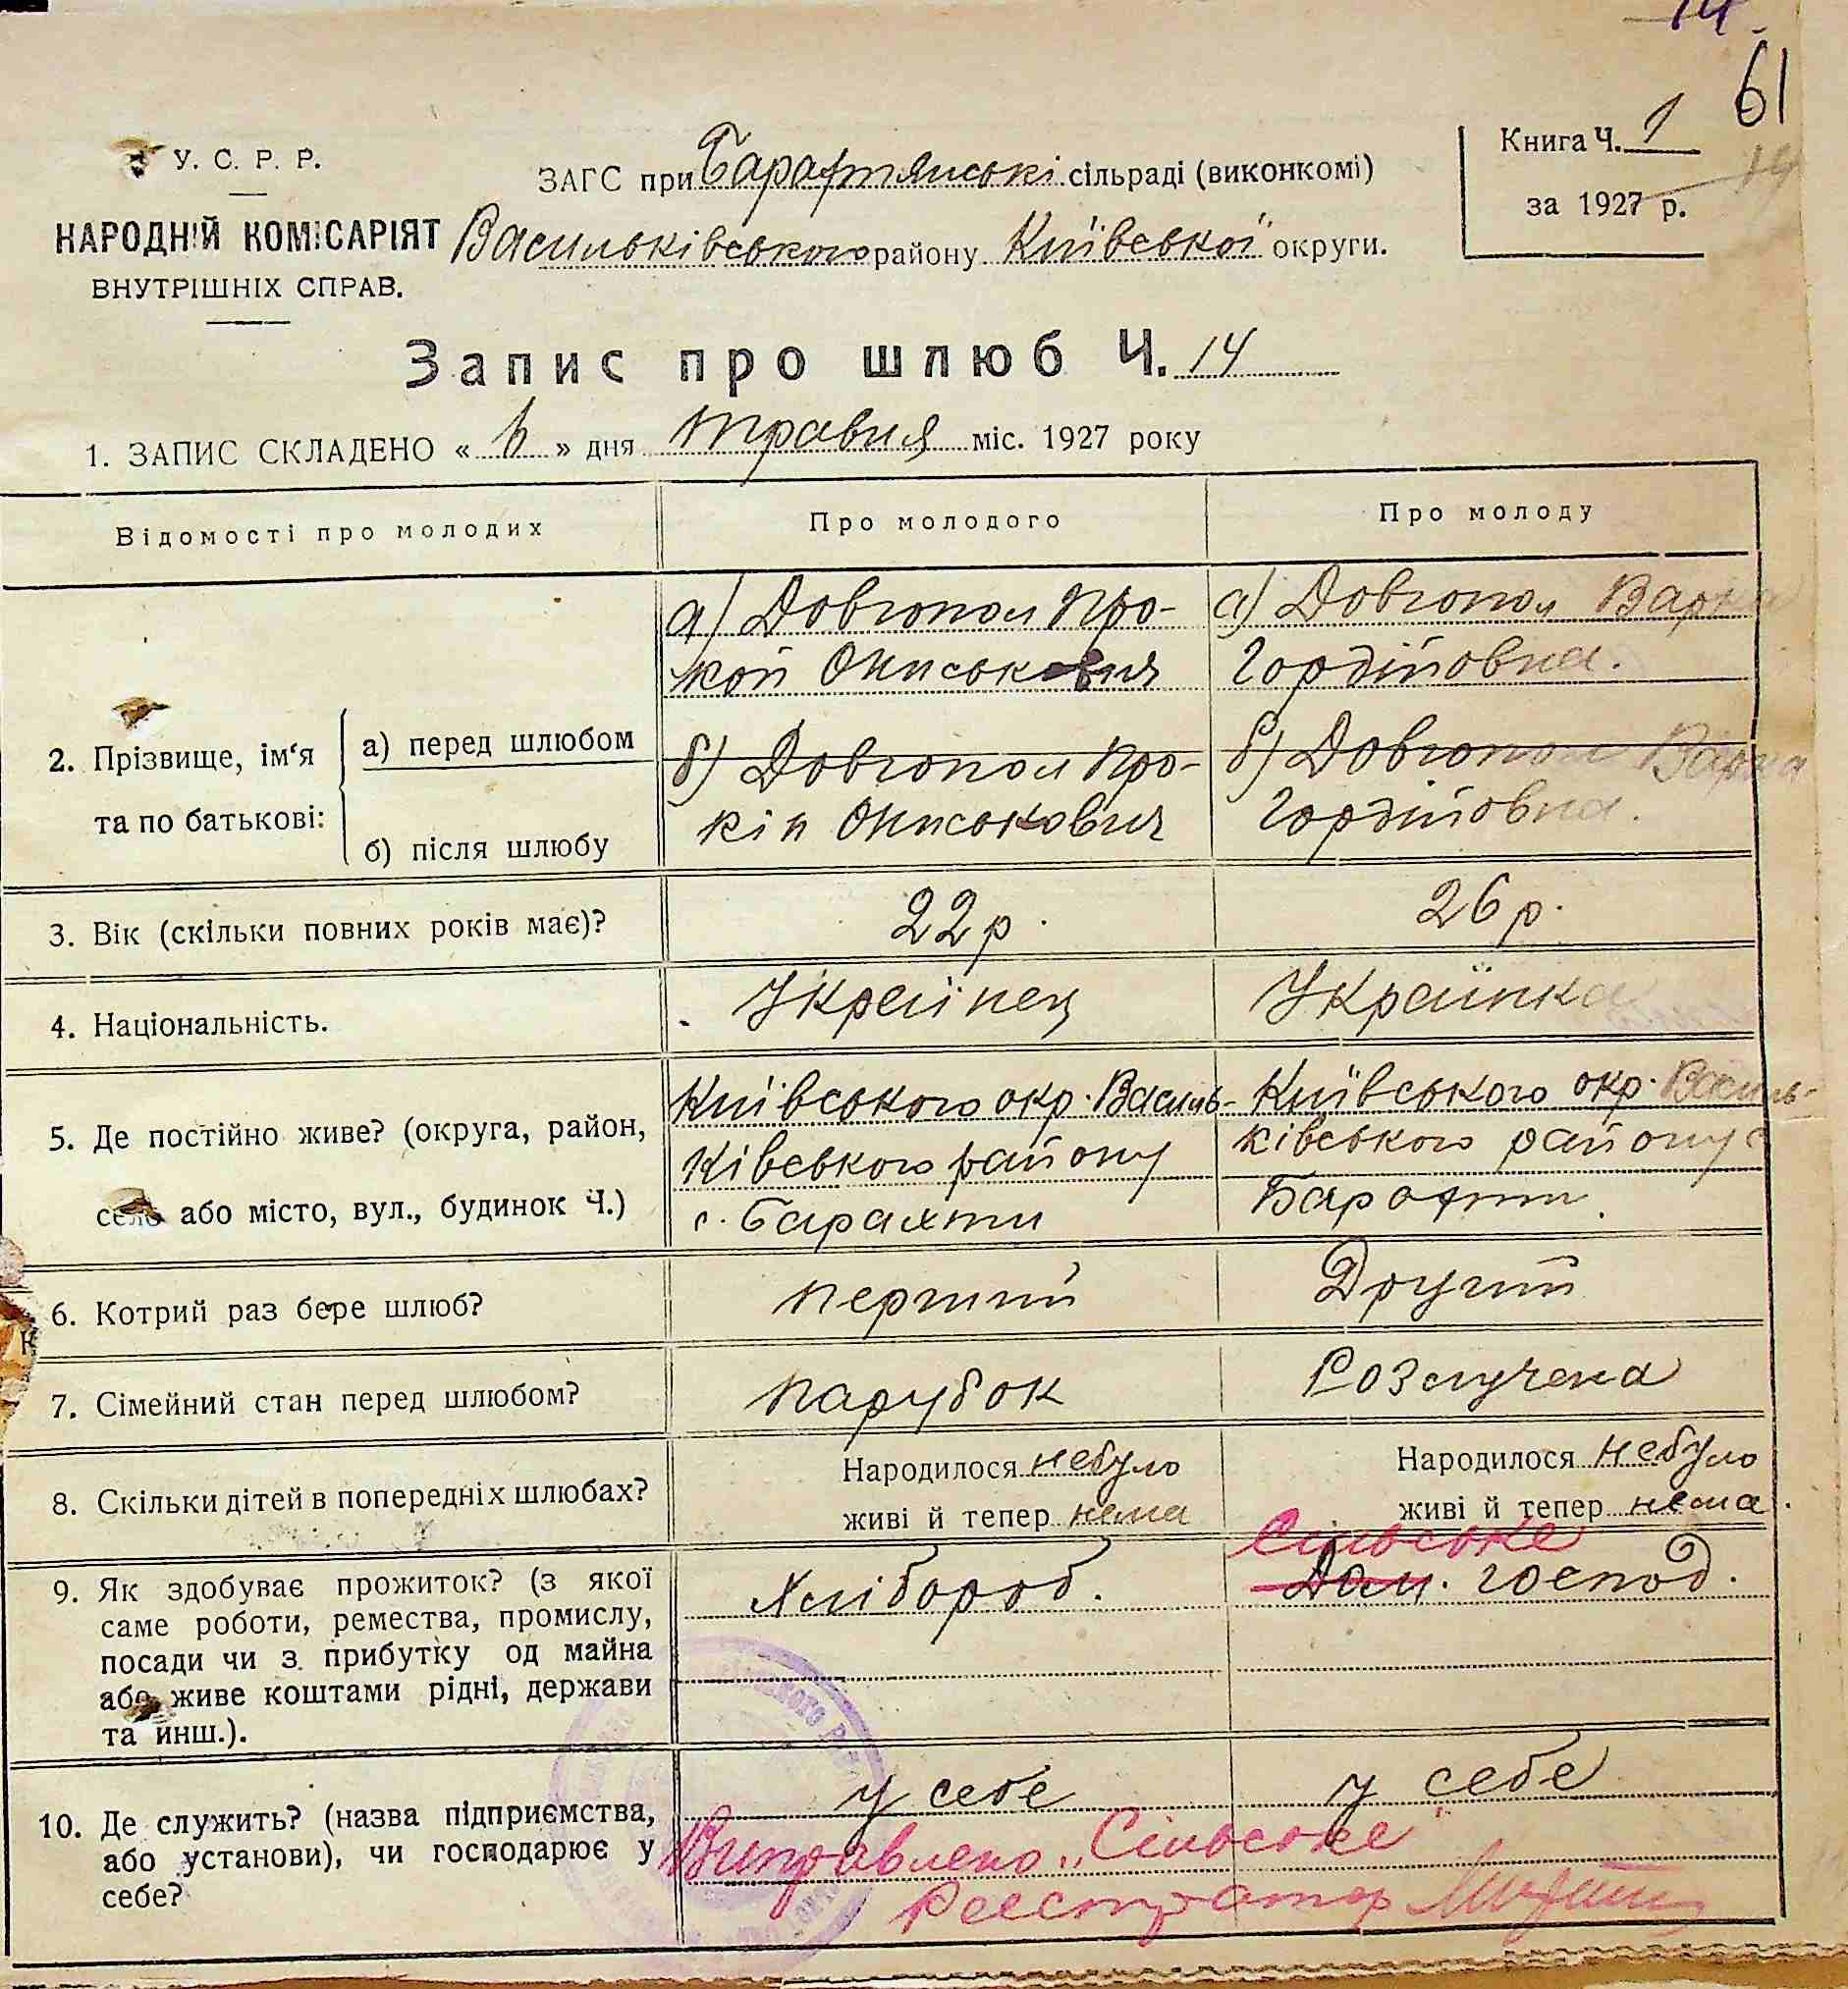 14.
61
У. С. Р. Р.
НАРОДНІЙ КОМІСАРІЯТ
ВНУТРІШНІХ СПРАВ.
ЗАГС при Барахтянські сільраді (виконкомі)
Васильківського району Київської округи.
Книга Ч. 1
19
за 1927 р.
Запис про шлюб Ч. 14
1. ЗАПИС СКЛАДЕНО « » дня травня міс. 1927 року
Відомості про молодих
Про молодого
Про молоду
2. Прізвище, ім‘я та по батькові:
а) перед шлюбом
б) після шлюбу
а) Довгопол Про-
коп Ониськович
б) Довгопол Про-
кіп Ониськович
а) Довгопол Варка
Гордійовна.
б) Довгопол Варка
Гордійовна.
3. Вік (скільки повних років має)?
22 р.
26 р.
4. Національність.
Українец
Українка
5. Де постійно живе? (округа, район,
село або місто, вул., будинок Ч.)
Київського окр. Василь-
ківського району
с. Барахти
Київського окр. Василь-
ківського району с
Барахти.
6. Котрий раз бере шлюб?
перший
Другий
7. Сімейний стан перед шлюбом?
парубок
Розлучена
8. Скільки дітей в попередніх шлюбах?
Народилося небуло
живі й тепер нема
Народилося небуло
живі й тепер нема.
9. Як здобуває прожиток? (з якої
саме роботи, ремества, промислу,
посади чи з прибутку од майна
або живе коштами рідні, держави
та инш.).
Хлібороб.
Сільське
Дом. господ.
10. Де служить? (назва підприємства,
або установи), чи господарює у
себе?
у себе
у себе
Виправлено „Сільське“
Реєстратор